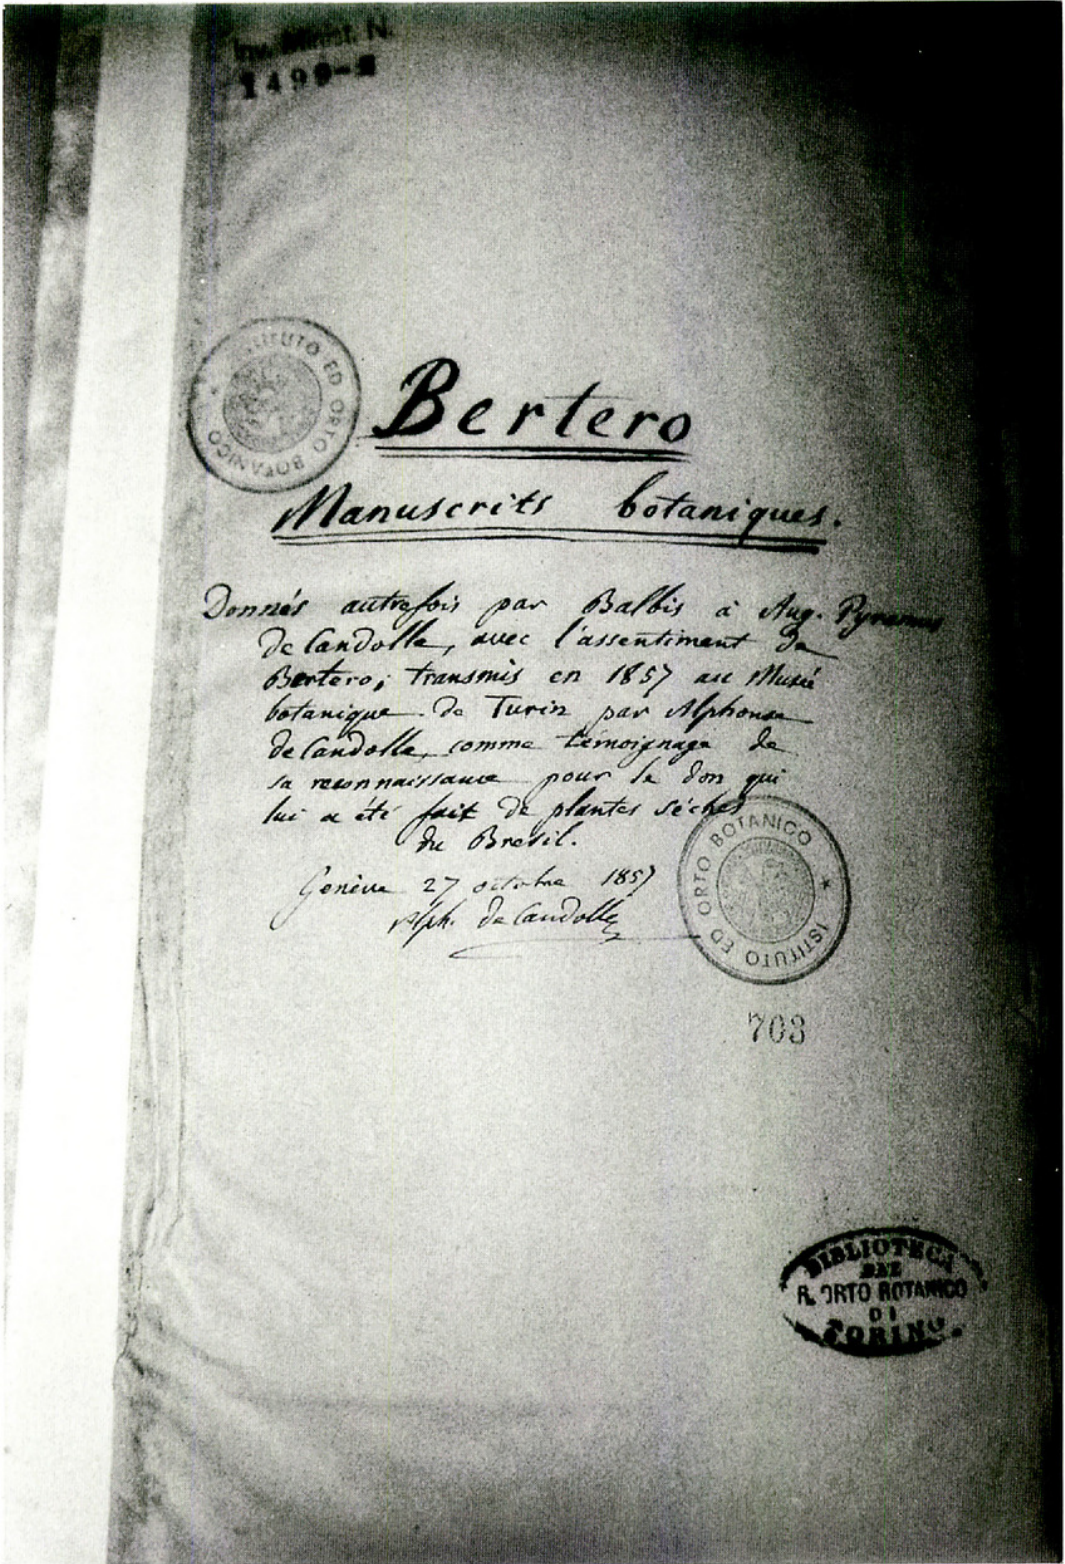 Inv. Minist. N.
1499-
ISTITUTO ED ORTO BOTANICO
Bertero
Manuscrits botaniques.
Donnés autrefois par Balbis à Aug. Pyramus
de Candolle, avec l'assentiment de
Bertero; transmis en 1857 au Musée
botanique de Turin par Alphonse
de Candolle, comme témoignage de
sa reconnaissance pour le don qui
lui a été fait de plantes sèches
du Brésil.
Genève 27 octobre 1857
Alph. de Candolle
ISTITUTO ED ORTO BOTANICO
703
BIBLIOTECA
DEL
R. ORTO BOTANICO
DI
TORINO.